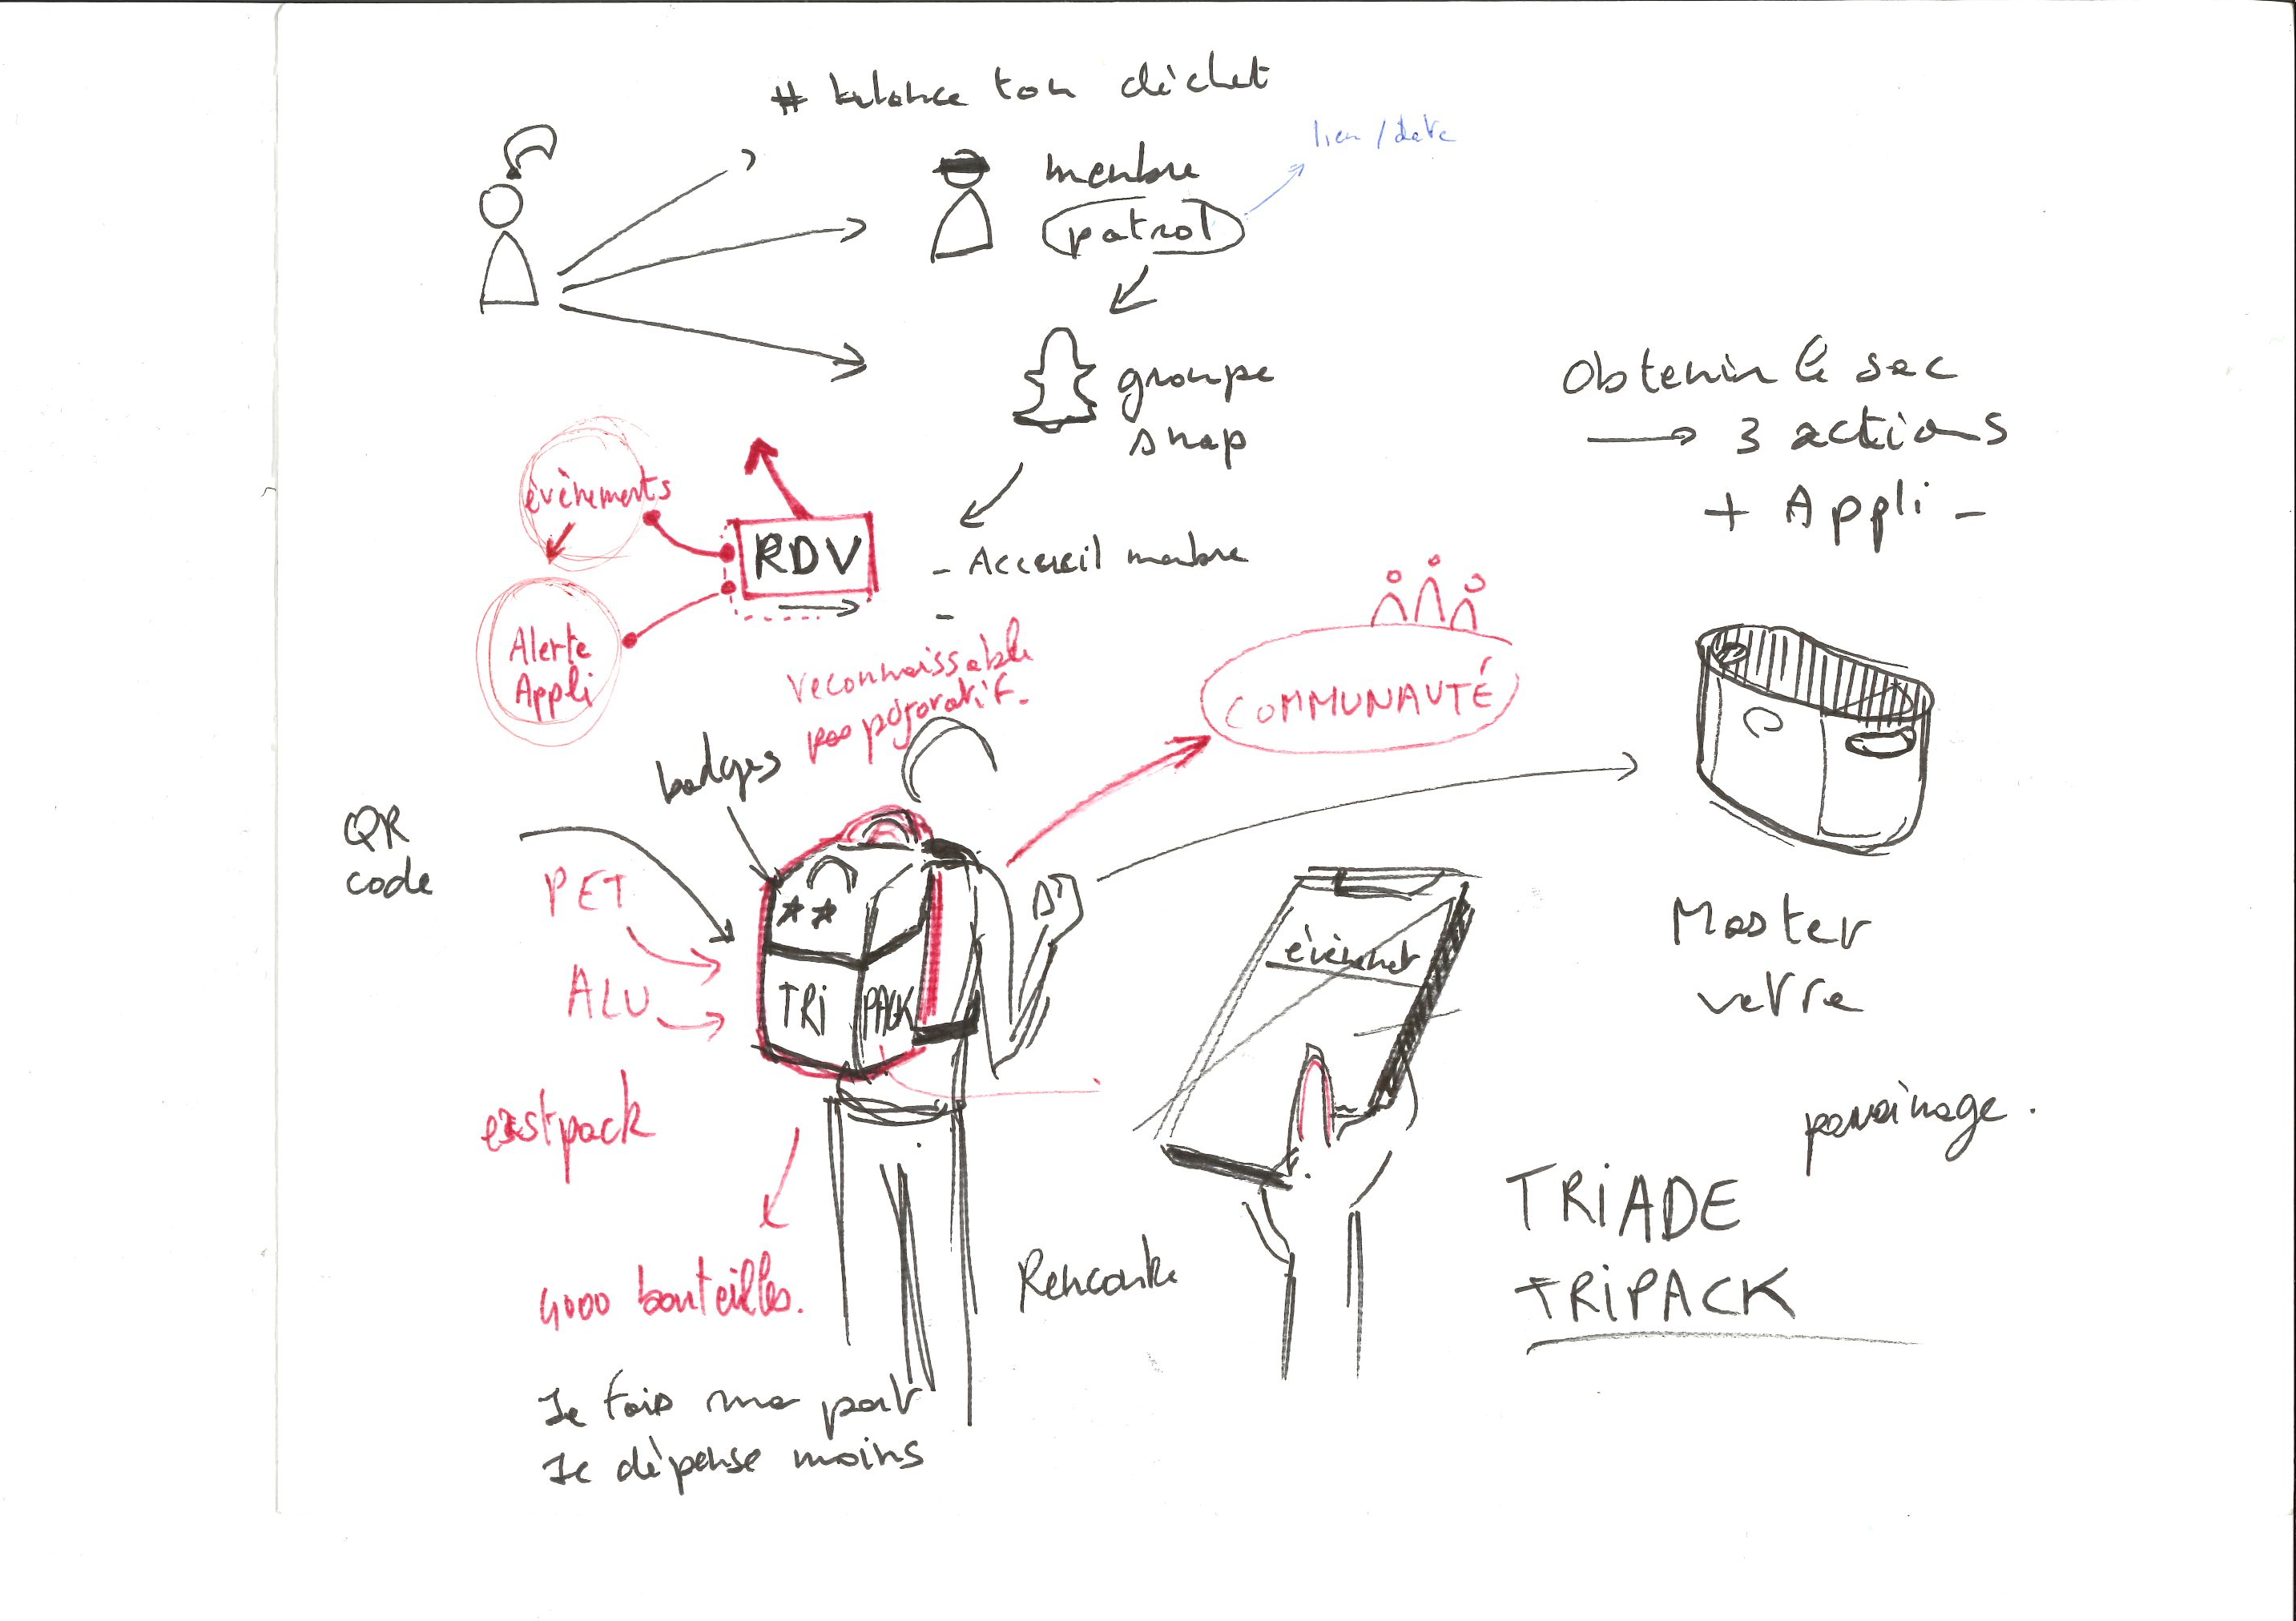 # balance ton déchet
lien / date
membre
patrol
groupe
snap
Obtenir le sac
→ 3 actions
+ Appli -
évènements
RDV
- Accueil membre
-
Alerte
Appli
reconnaissable
pas péjoratif.
COMMUNAUTÉ
badges
QR
code
PET
ALU
TRI PACK
évènemet
Master
verre
eastpack
parrainage.
TRIADE
TRIPACK
4000 bouteilles.
Rencontre
Je fais ma part
Je dépense moins